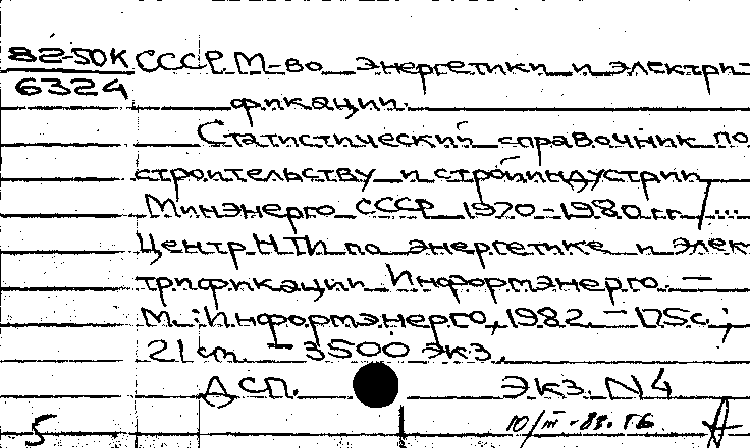 82-50К СССР. М-во энергетики и электри-
6324 фикации.
Статистический справочник по
строительству и стройиндустрии
Минэнерго СССР 1970-1980 гг. / ...
Центр НТИ по энергетике и элек
трификации Информэнерго. –
М.: Информэнерго, 1982. – 175 с.;
21 см. – 3500 экз.
ДСП. ЭКЗ. N4
5 10/III-83.